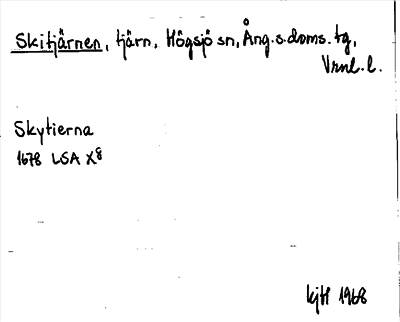 Skitjärnen, tjärn, Högsjö sn, Ång. s. doms. tg,
Vrnl. l.
Skytierna
1678 LSA X8
kjH 1968